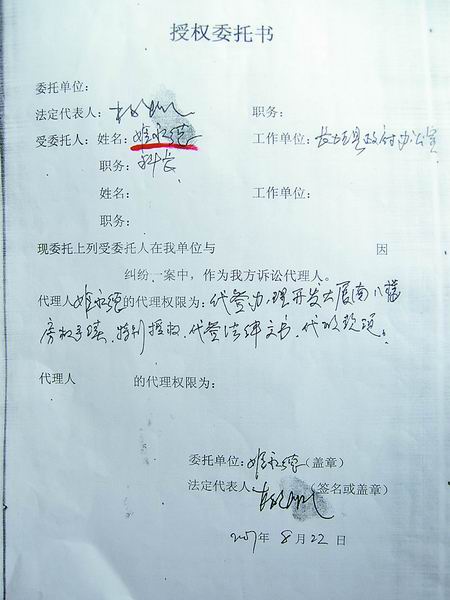 授权委托书
委托单位：
法定代表人： 职务：
受委托人：姓名：姬永德 工作单位：长垣县政府办公室
职务：科长
姓名： 工作单位：
职务：
现委托上列受委托人在我单位与 因
纠纷一案中，作为我方诉讼代理人。
代理人姬永德的代理权限为：代营办理开发大厦南八幢
房权手续、特别授权、代营法律文书、代收款项。
代理人 的代理权限为：
委托单位：姬永德（盖章）
法定代表人： （签名或盖章）
年 8 月 22 日